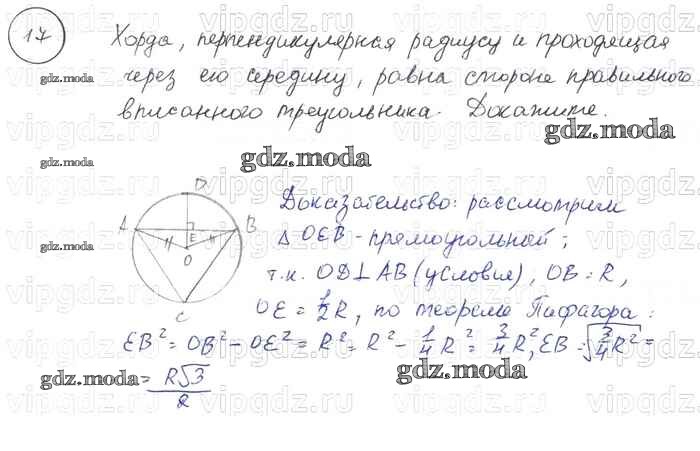 17
Хорда, перпендикулярная радиусу и проходящая
через его середину, равна стороне правильного
вписанного треугольника. Докажите.
gdz.moda
gdz.moda
gdz.moda
gdz.moda
D
A B
E
O
C
gdz.moda
Доказательство: рассмотрим
Δ OEB - прямоугольной;
т.к. OD⊥AB (условия), OB = R,
OE = 1/2 R, по теореме Пифагора:
EB² = OB² - OE² = R² = R² - 1/4 R² = 3/4 R², EB = √(3/4 R²) =
gdz.moda
gdz.moda
= R√3/2
vipgdz.ru